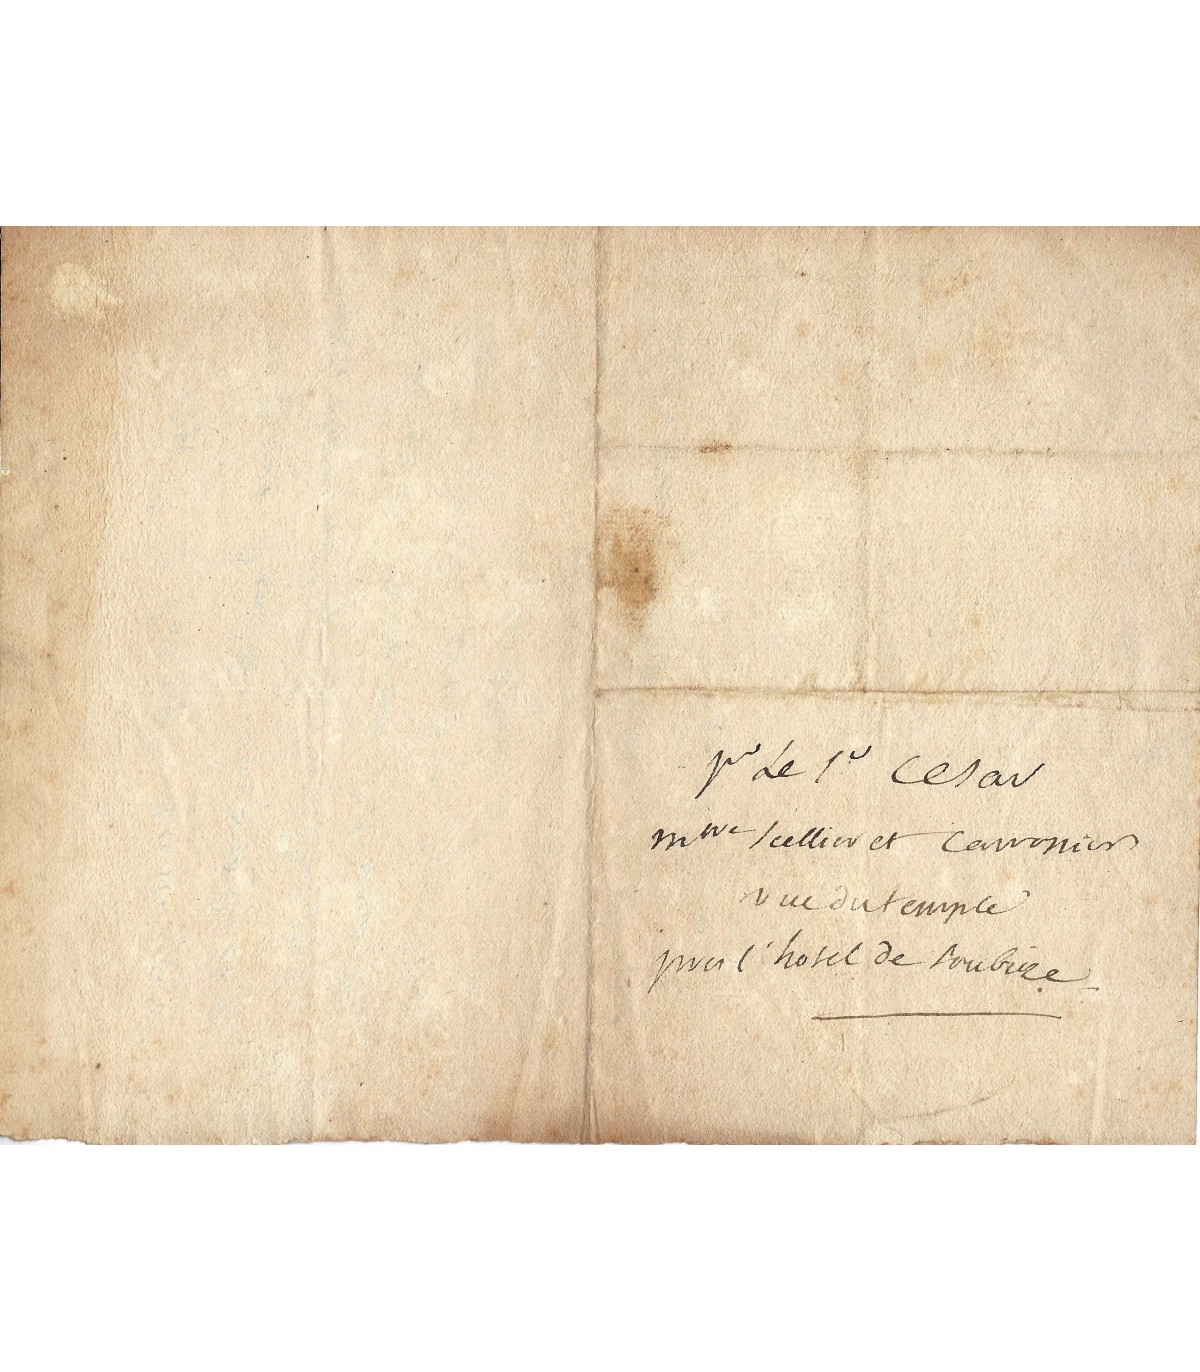 pr Le Sr Cesar
mtre scellier et Carrossier
rue du temple
pres l'hotel de Soubize